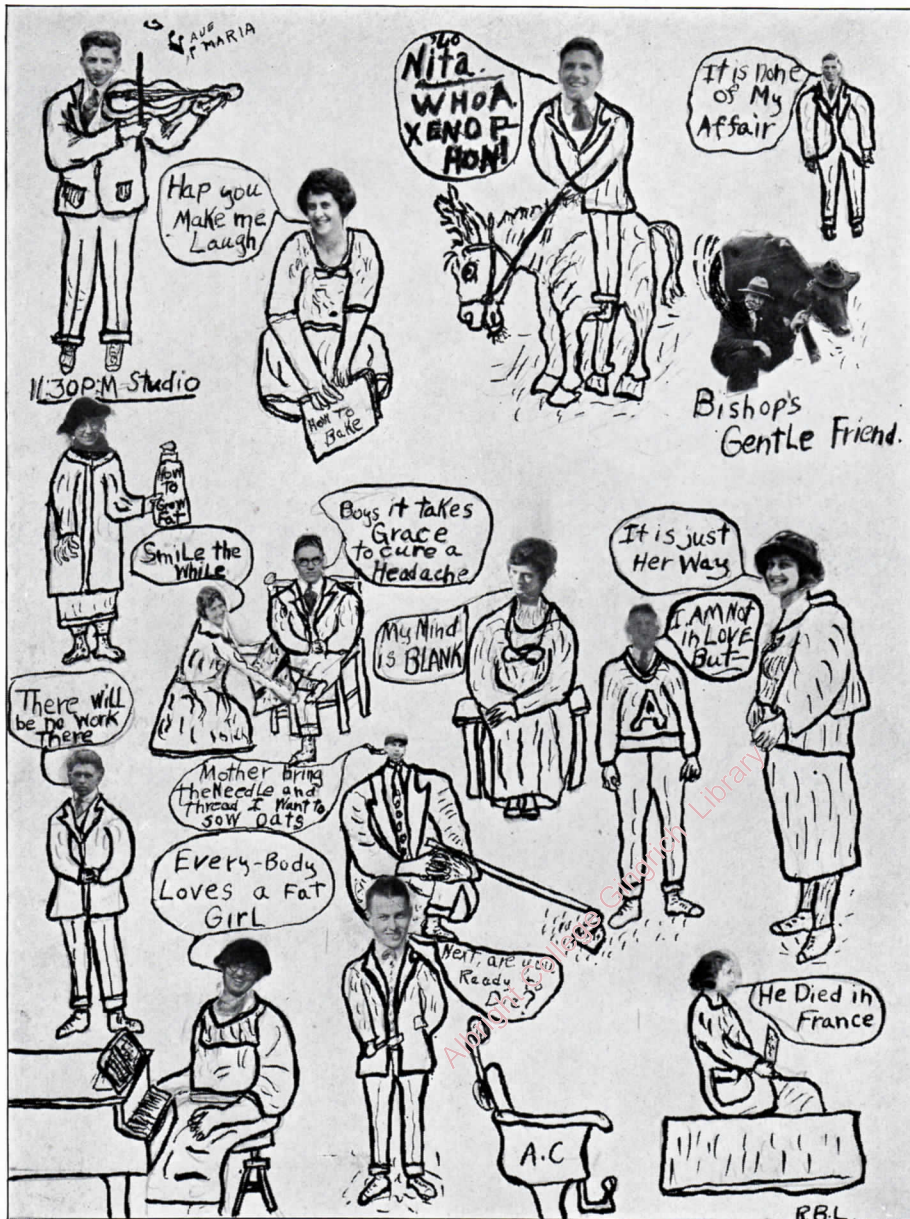 AUF
MARIA
Nita.
WHOA.
XENOP-
HON!
It is none
of My
Affair
Hap you
Make me
Laugh
How To
Bake
11:30 P.M Studio
Bishop's
Gentle Friend.
How
To
Grow
Fat
Smile the
While
Boys it takes
Grace
to cure a
Headache
My Mind
is BLANK
It is just
Her Way
I AM Not
in LOVE
But-
There will
be no work
There
Mother bring
the Needle and
thread I Want to
sow Oats
Every-Body
Loves a Fat
Girl
Next, are you
Ready
He Died in
France
A.C
R.B.L
Albright College Gingrich Library